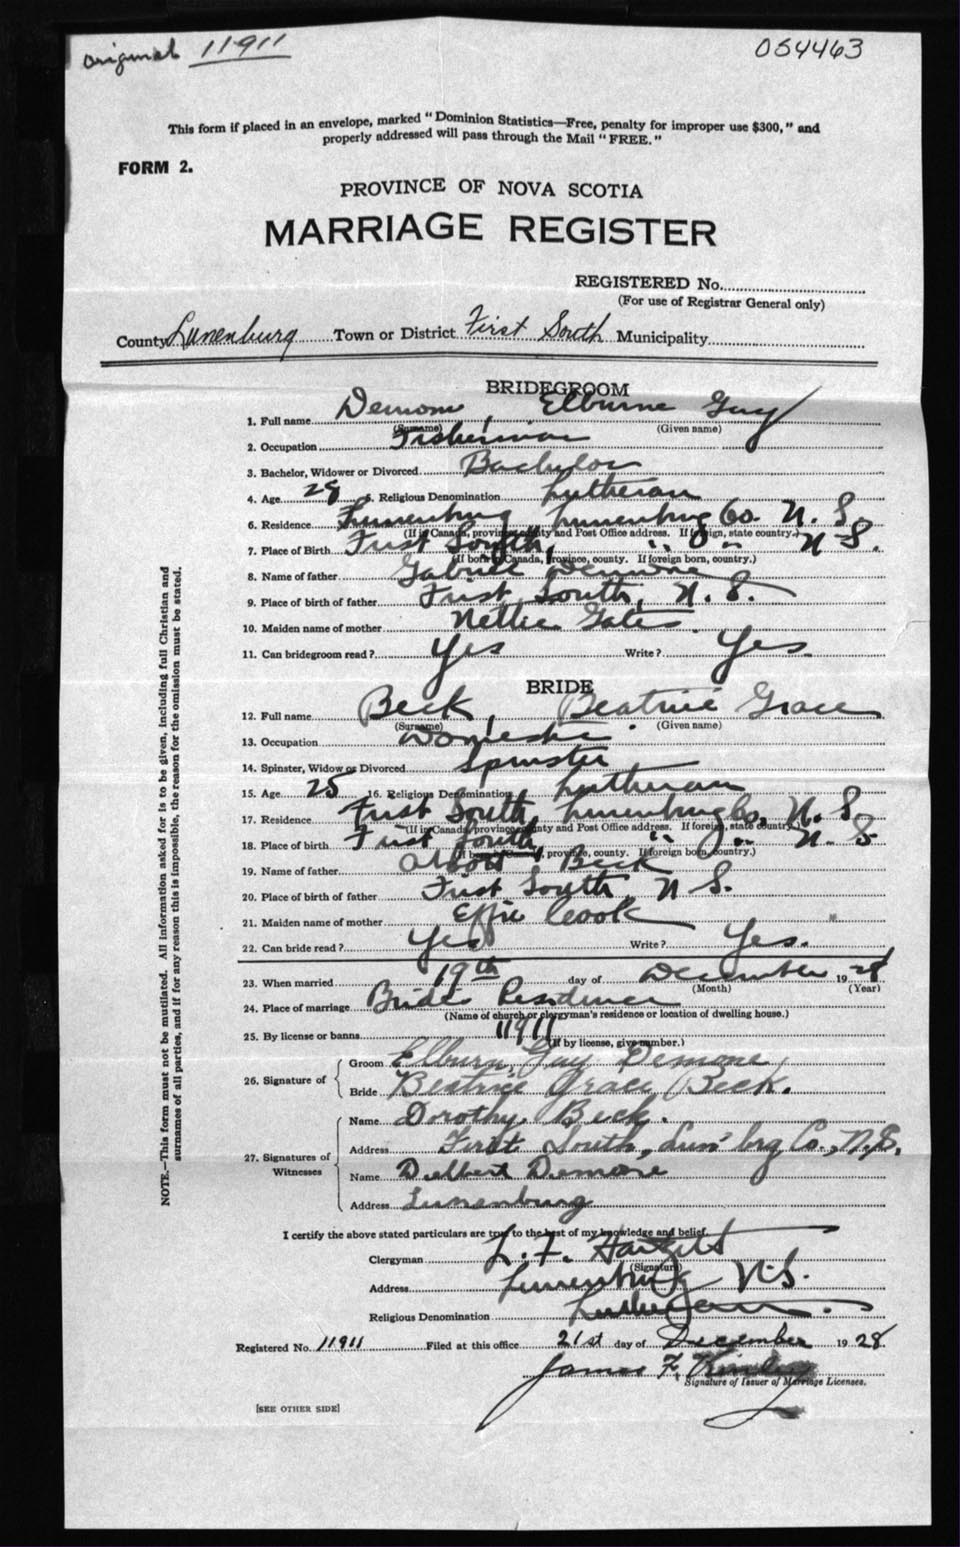 original 11911
054463
This form if placed in an envelope, marked "Dominion Statistics—Free, penalty for improper use $300," and
properly addressed will pass through the Mail "FREE."
FORM 2.
PROVINCE OF NOVA SCOTIA
MARRIAGE REGISTER
REGISTERED No.
(For use of Registrar General only)
County Lunenburg Town or District First South Municipality
BRIDEGROOM
1. Full name Demone, Elburne Guy
(Surname) (Given name)
2. Occupation Fisherman
3. Bachelor, Widower or Divorced Bachelor
4. Age 28 5. Religious Denomination Lutheran
6. Residence Lunenburg Lunenburg Co. N. S.
(If in Canada, province, county and Post Office address. If foreign, state country.)
7. Place of Birth First South, " " N. S.
(If born in Canada, province, county. If foreign born, country.)
8. Name of father Gabriel Demone
9. Place of birth of father First South, N. S.
10. Maiden name of mother Nettie Gates
11. Can bridegroom read? Yes Write? Yes.
BRIDE
12. Full name Beck, Beatrice Grace
(Surname) (Given name)
13. Occupation Domestic
14. Spinster, Widow or Divorced Spinster
15. Age 25 16. Religious Denomination Lutheran
17. Residence First South Lunenburg Co, N. S
(If in Canada, province, county and Post Office address. If foreign, state country.)
18. Place of birth First South " " N. S
(If born in Canada, province, county. If foreign born, country.)
19. Name of father Beck
20. Place of birth of father First South, N S.
21. Maiden name of mother Effie Cook
22. Can bride read? Yes Write? Yes.
23. When married 19th day of December 1928
(Month) (Year)
24. Place of marriage Brides Residence
(Name of church or clergyman's residence or location of dwelling house.)
25. By license or banns 11911
(If by license, give number.)
26. Signature of
Groom Elburn Guy Demone
Bride Beatrice Grace Beck.
27. Signatures of Witnesses
Name Dorothy Beck.
Address First South, Lun'brg Co., N.S.
Name Delbert Demone
Address Lunenburg
I certify the above stated particulars are true to the best of my knowledge and belief.
Clergyman L. F.
(Signature)
Address Lunenburg N.S.
Religious Denomination Lutheran.
Registered No. 11911 Filed at this office 21st day of December 1928
James F.
Signature of Issuer of Marriage Licenses.
[SEE OTHER SIDE]
NOTE.—This form must not be mutilated. All information asked for is to be given, including full Christian and
surnames of all parties, and if for any reason this is impossible, the reason for the omission must be stated.